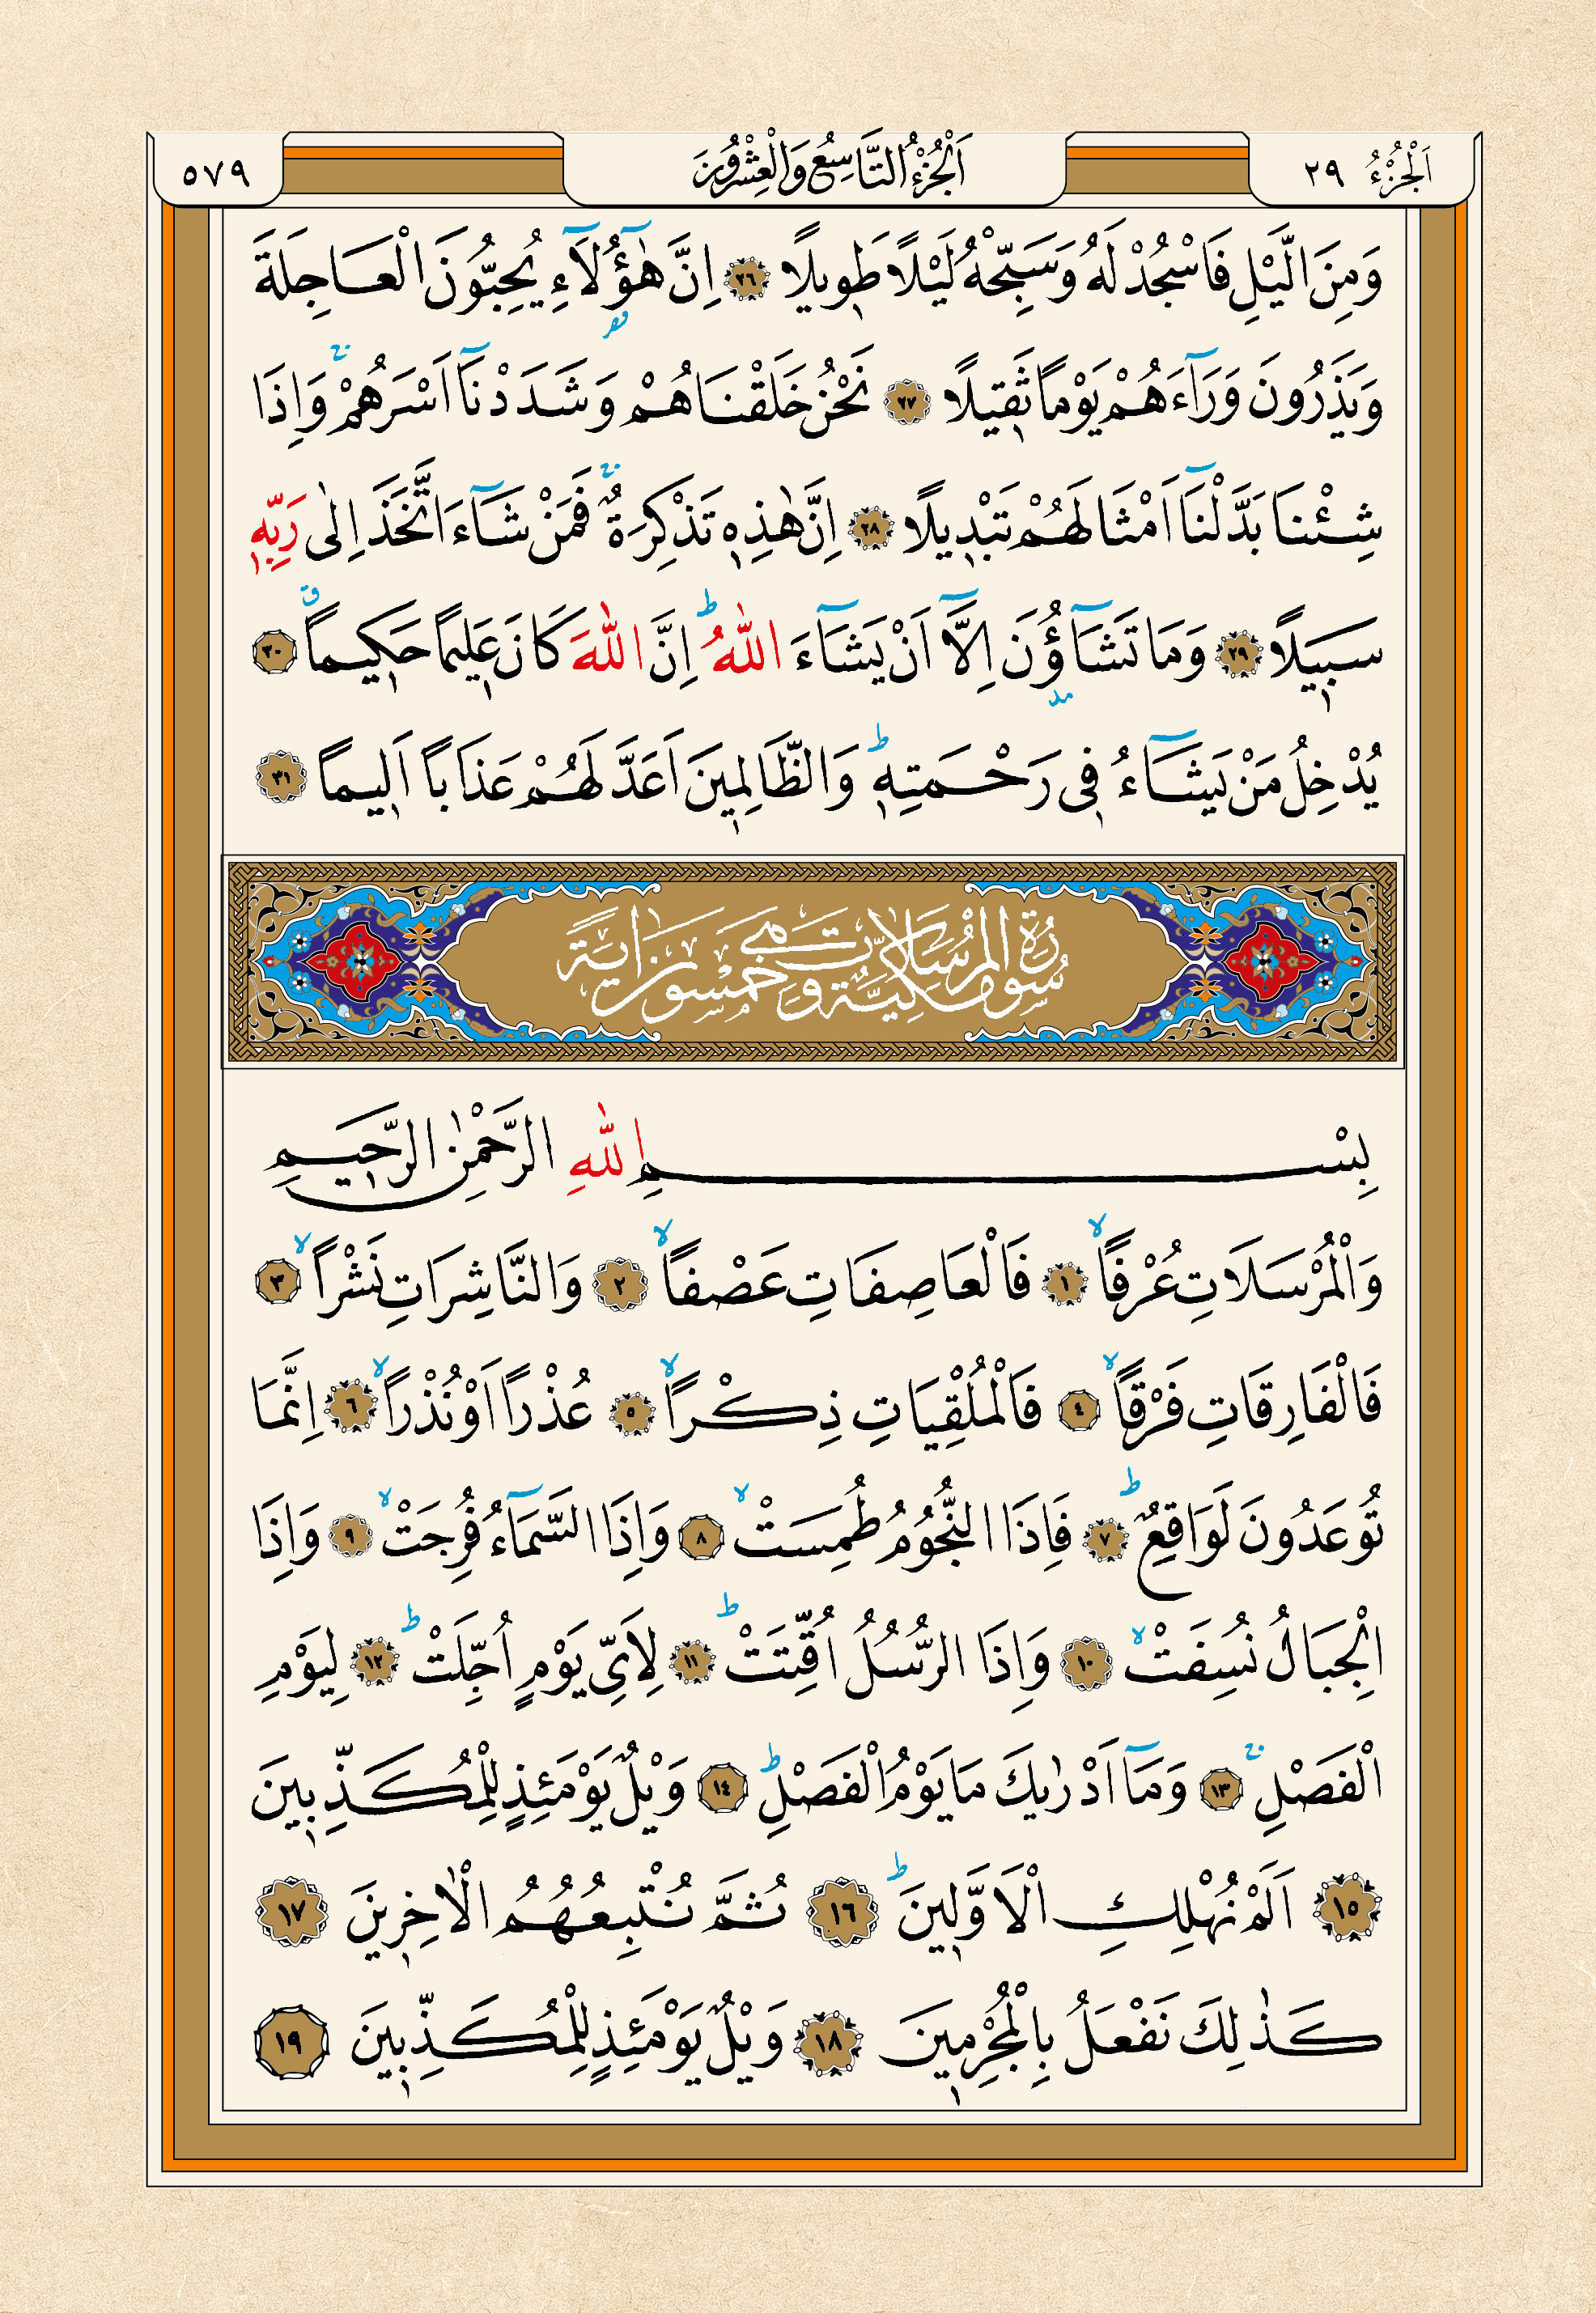 اَلْجُزْءُ ٢٩
اَلْجُزْءُ التَّاسِعُ وَالْعِشْرُونَ
٥٧٩
وَمِنَ الَّيْلِ فَاسْجُدْ لَهُ وَسَبِّحْهُ لَيْلًا طَوٖيلًا ٢٦ اِنَّ هٰٓؤُ۬لَٓاءِ يُحِبُّونَ الْعَاجِلَةَ
وَيَذَرُونَ وَرَٓاءَهُمْ يَوْمًا ثَقٖيلًا ٢٧ نَحْنُ خَلَقْنَاهُمْ وَشَدَدْنَٓا اَسْرَهُمْۚ وَاِذَا
شِئْنَا بَدَّلْنَٓا اَمْثَالَهُمْ تَبْدٖيلًا ٢٨ اِنَّ هٰذِهٖ تَذْكِرَةٌۚ فَمَنْ شَٓاءَ اتَّخَذَ اِلٰى رَبِّهٖ
سَبٖيلًا ٢٩ وَمَا تَشَٓاؤُ۫نَ اِلَّٓا اَنْ يَشَٓاءَ اللّٰهُؕ اِنَّ اللّٰهَ كَانَ عَلٖيمًا حَكٖيمًاۗ ٣٠
يُدْخِلُ مَنْ يَشَٓاءُ فٖى رَحْمَتِهٖؕ وَالظَّالِمٖينَ اَعَدَّ لَهُمْ عَذَابًا اَلٖيمًا ٣١
سُورَةُ الْمُرْسَلَاتِ مَكِّيَّةٌ وَهِيَ خَمْسُونَ اٰيَةً
بِسْمِ اللّٰهِ الرَّحْمٰنِ الرَّحٖيمِ
وَالْمُرْسَلَاتِ عُرْفًاۙ ١ فَالْعَاصِفَاتِ عَصْفًاۙ ٢ وَالنَّاشِرَاتِ نَشْرًاۙ ٣
فَالْفَارِقَاتِ فَرْقًاۙ ٤ فَالْمُلْقِيَاتِ ذِكْرًاۙ ٥ عُذْرًا اَوْ نُذْرًاۙ ٦ اِنَّمَا
تُوعَدُونَ لَوَاقِعٌؕ ٧ فَاِذَا النُّجُومُ طُمِسَتْۙ ٨ وَاِذَا السَّمَٓاءُ فُرِجَتْۙ ٩ وَاِذَا
الْجِبَالُ نُسِفَتْۙ ١٠ وَاِذَا الرُّسُلُ اُقِّتَتْؕ ١١ لِاَىِّ يَوْمٍ اُجِّلَتْؕ ١٢ لِيَوْمِ
الْفَصْلِۚ ١٣ وَمَٓا اَدْرٰيكَ مَا يَوْمُ الْفَصْلِؕ ١٤ وَيْلٌ يَوْمَئِذٍ لِلْمُكَذِّبٖينَ
١٥ اَلَمْ نُهْلِكِ الْاَوَّلٖينَؕ ١٦ ثُمَّ نُتْبِعُهُمُ الْاٰخِرٖينَ ١٧
كَذٰلِكَ نَفْعَلُ بِالْمُجْرِمٖينَ ١٨ وَيْلٌ يَوْمَئِذٍ لِلْمُكَذِّبٖينَ ١٩